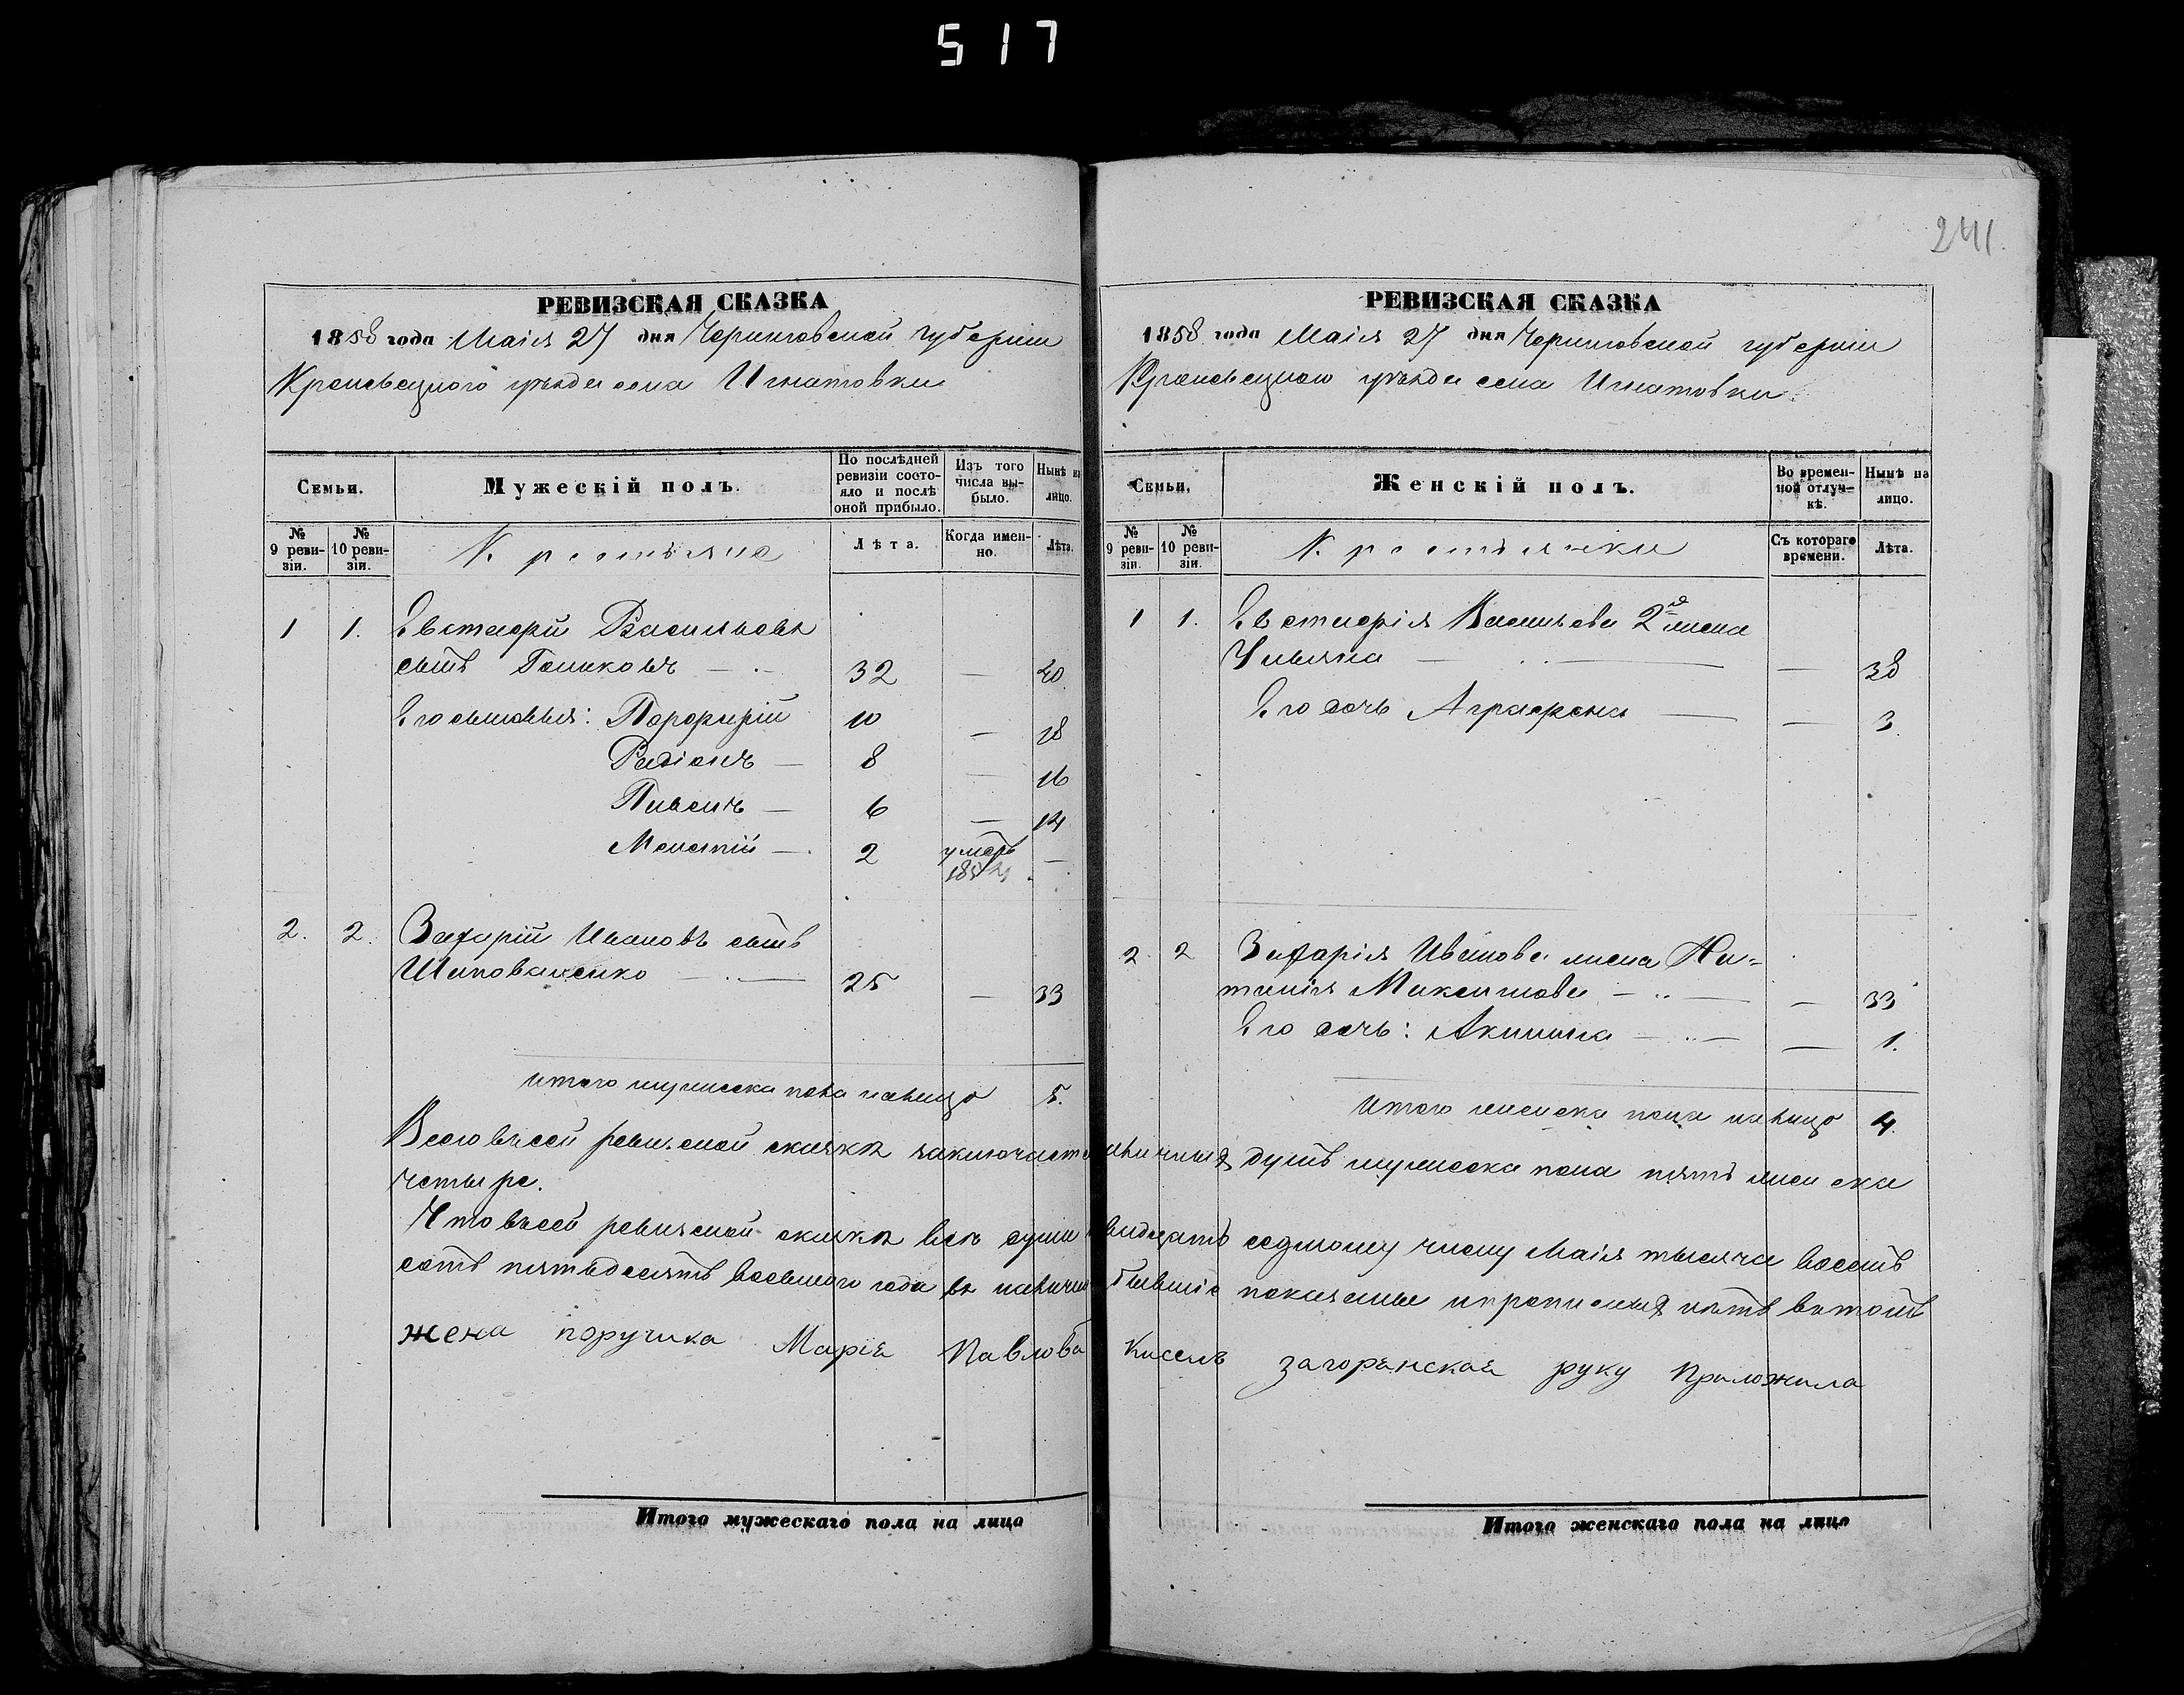 517
241.
РЕВИЗСКАЯ СКАЗКА
1858 года Маія 27 дня Черниговской губерніи
Кролевецкого уѣзда села Игнатовки
Семьи.
Мужескій полъ.
По послѣдней ревизіи состояло и послѣ оной прибыло.
Изъ того числа выбыло.
Нынѣ на лицо.
№ 9 ревизіи.
№ 10 ревизіи.
Крестьяне
Лѣта.
Когда именно.
Лѣта.
1 1. Евстафій Васильевъ
сынъ Голиковъ — 32 — 40
Его сыновья: Порфирій 10 — 18
Радіонъ — 8 — 16
Пименъ — 6 — 14
2 умеръ —
2. 2. Захарій Ивановъ сынъ
Шаповаленко — 25 — 33
Итого мужеска пола налицо 5.
РЕВИЗСКАЯ СКАЗКА
1858 года Маія 27 дня Черниговской губерніи
Кролевецкого уѣзда села Игнатовки.
Семьи.
Женскій полъ.
Во временной отлучкѣ.
Нынѣ на лицо.
№ 9 ревизіи.
№ 10 ревизіи.
Крестьянки
Съ котораго времени.
Лѣта.
1 1. Евстафія Васильева 2я жена
Ульяна — — 38
Его дочь Аграфена — — 3
2. 2 Захарія Иванова жена На-
талія Максимова — — 33
Его дочь: Акилина — — 1.
Итого женска пола налицо 4.
Всего въ сей ревизской сказкѣ заключается наличныхъ душъ мужеска пола пять женска
четыре.
Что въ сей ревизской сказкѣ всѣ души къ двадцать седьмому числу Маія тысяча восемь
сотъ пятьдесятъ восьмого года въ наличіи бывшіе показаны и прописныхъ нѣтъ въ томъ
жена поручика Марія Павлова Кисель Загорянская руку приложила
Итого мужескаго пола на лицо
Итого женскаго пола на лицо